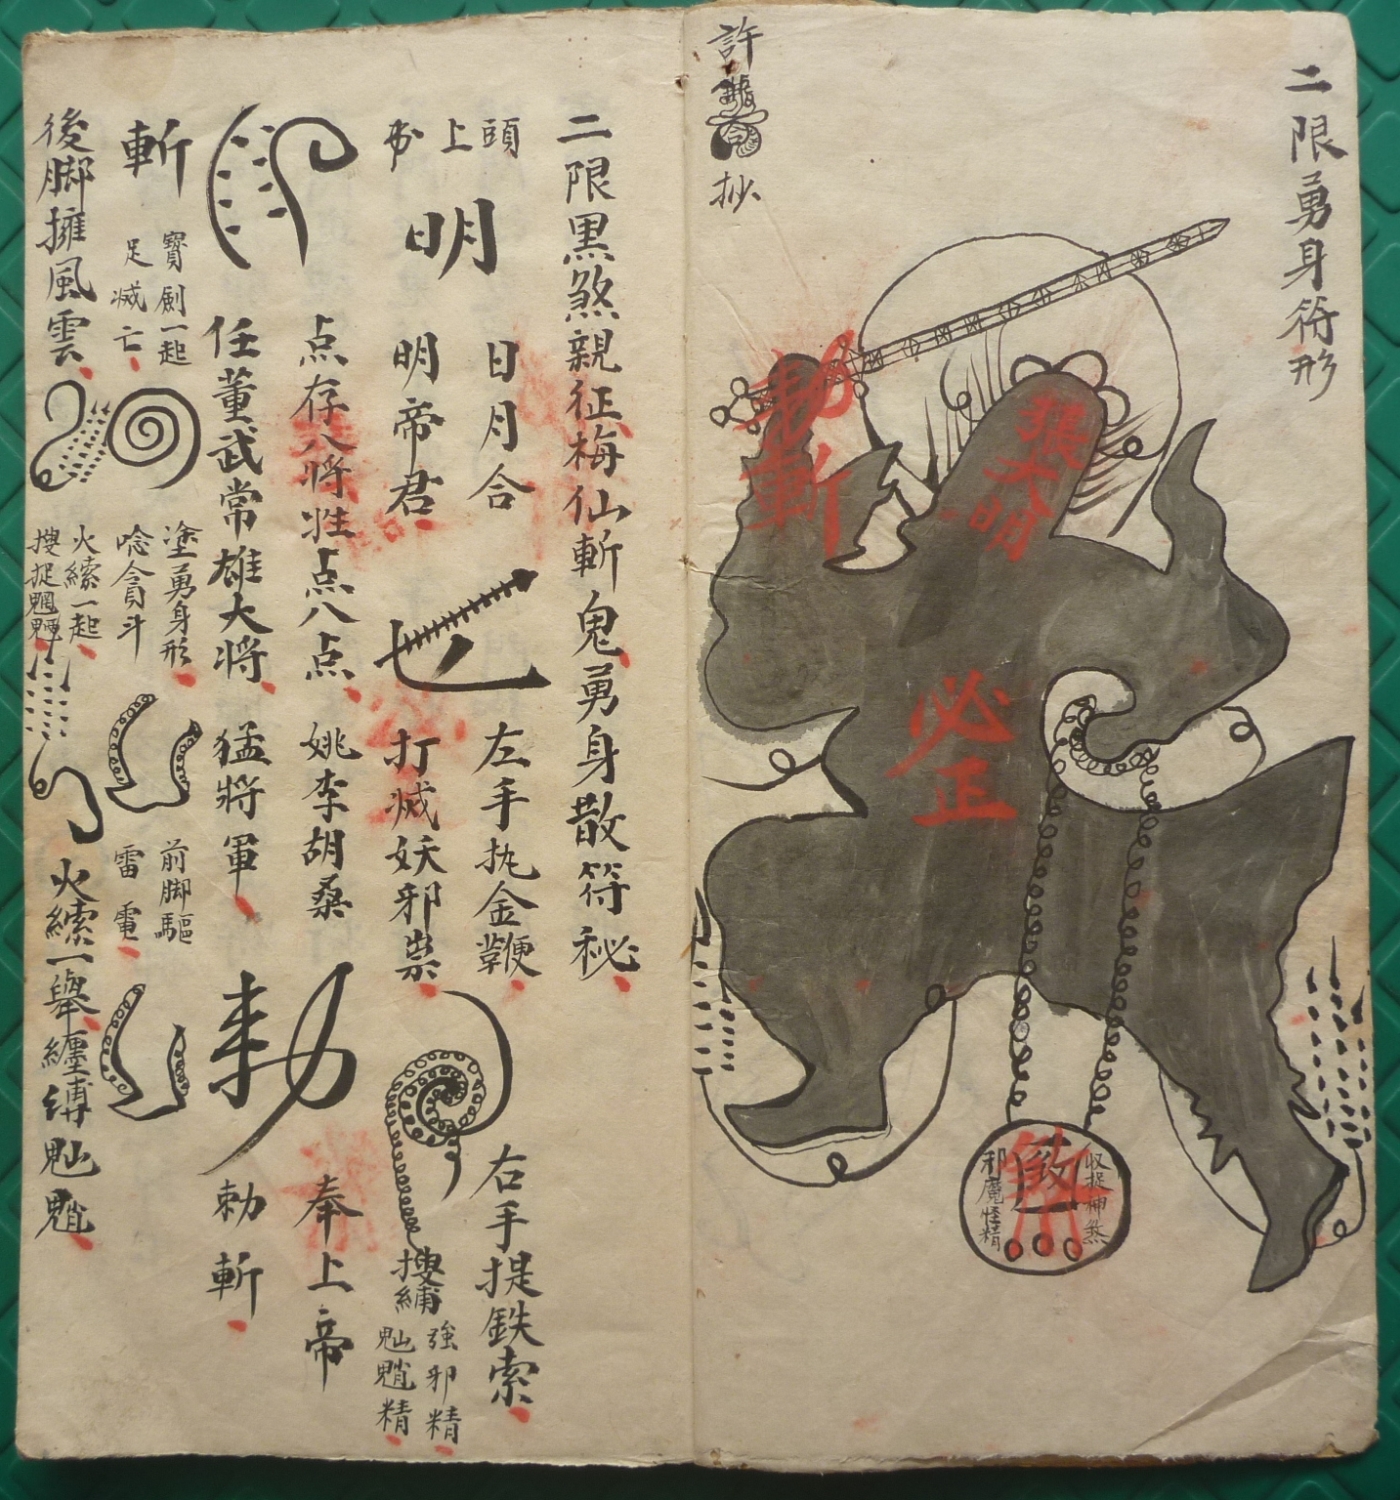 二限勇身符形
勅斬
張大明
必正
收捉神煞
邪魔怪精
許
抄
二限黑煞親征梅仙斬鬼勇身散符秘
頭上書
明
日月合
明帝君
左手执金鞭
打滅妖邪祟
右手提鉄索
搜縛
強邪精
魈精
点存八将姓点八点
姚李胡桑
奉上帝
任董武常雄大将
猛將軍
勅
勅斬
斬
寶劍一起
足滅亡
塗勇身形
唸貪斗
前脚驅
雷電
後脚擁風雲
火繂一起
搜捉魍魎
火繂一舉纏縛魈